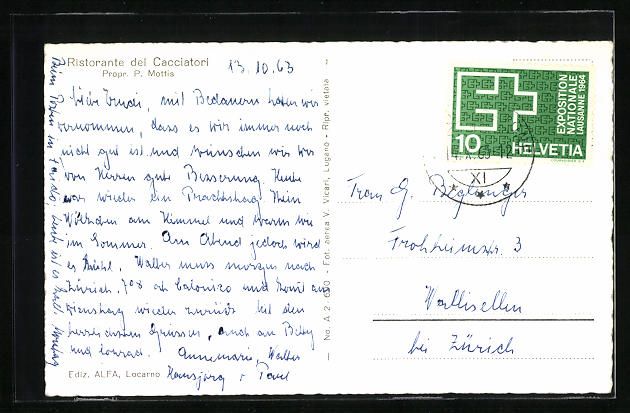 Ristorante dei Cacciatori
Propr. P. Mottis
13.10.63
Liebe Trudi, mit Bedauern haben wir
vernommen, dass es Dir immer noch
nicht gut ist und wünschen wir Dir
von Herzen gute Besserung. Heute
war wieder ein Prachtstag. Kein
Wölkchen am Himmel und warm wie
im Sommer. Am Abend jedoch wird
es kühl. Walter muss morgen nach
Zürich. und kommt am
Dienstag wieder zurück. Mit den
herzlichsten Grüssen, auch an Betty
und Conrad. Annemarie, Walter
Hansjörg + Paul
Ediz. ALFA, Locarno
No. A 2 - Fot. aerea V. Vicari, Lugano - Ripr. vietata
EXPOSITION
NATIONALE
LAUSANNE 1964
10 HELVETIA
XI
Frau G. Béglinger
Frohheimstr. 3
Wallisellen
bei Zürich